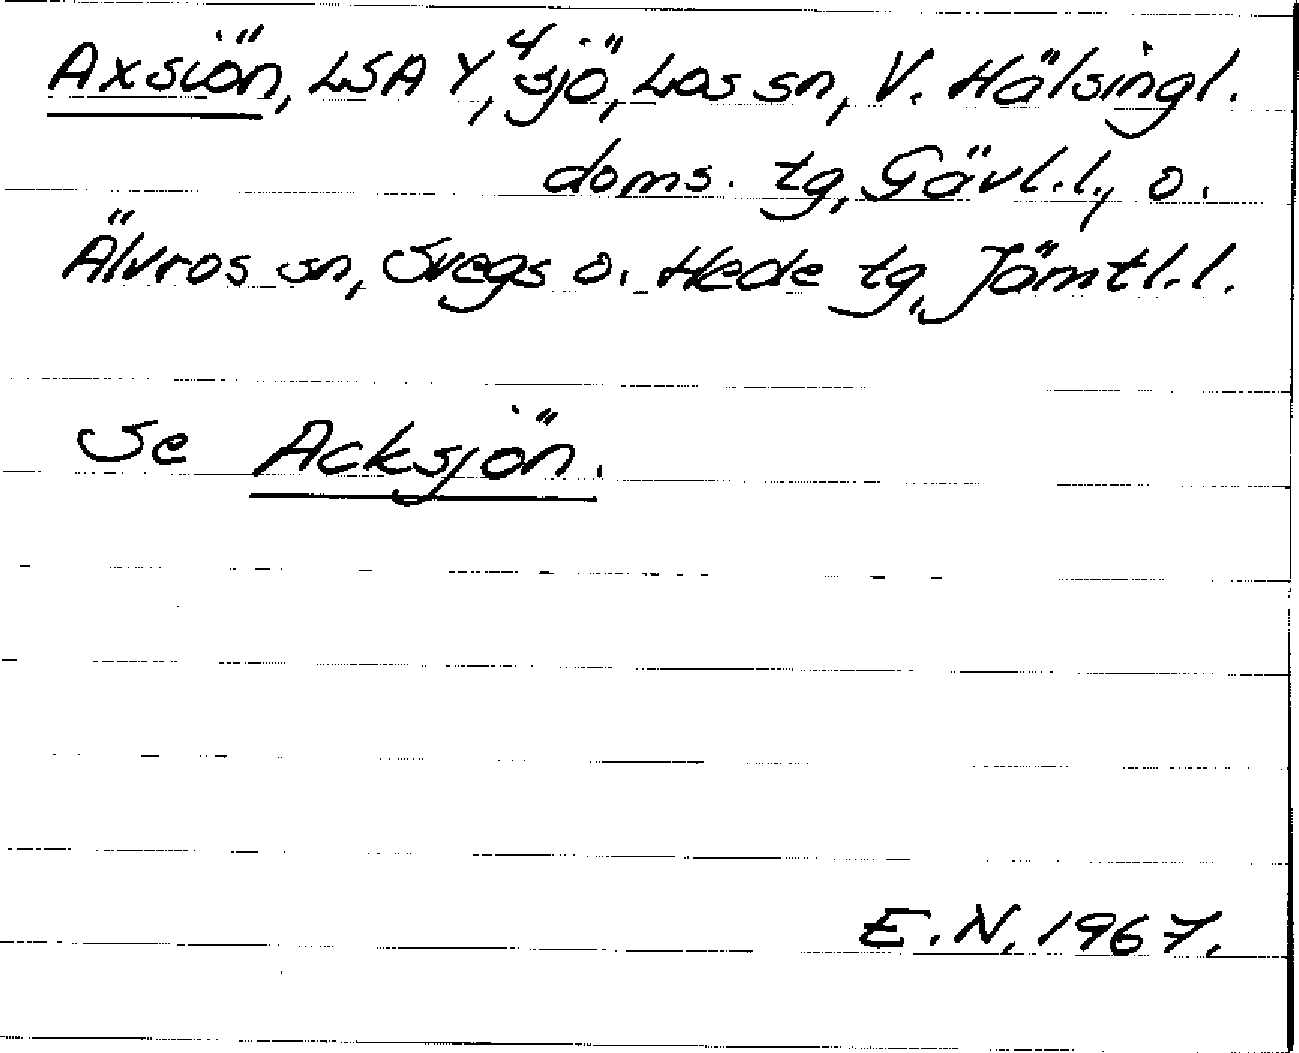 Axsiön, LSA Y⁴, sjö, Los sn, V. Hälsingl.
doms. tg, Gävl.l., o.
Älvros sn, Svegs o. Hede tg, Jämtl.l.
Se Acksjön.
E.N. 1967.